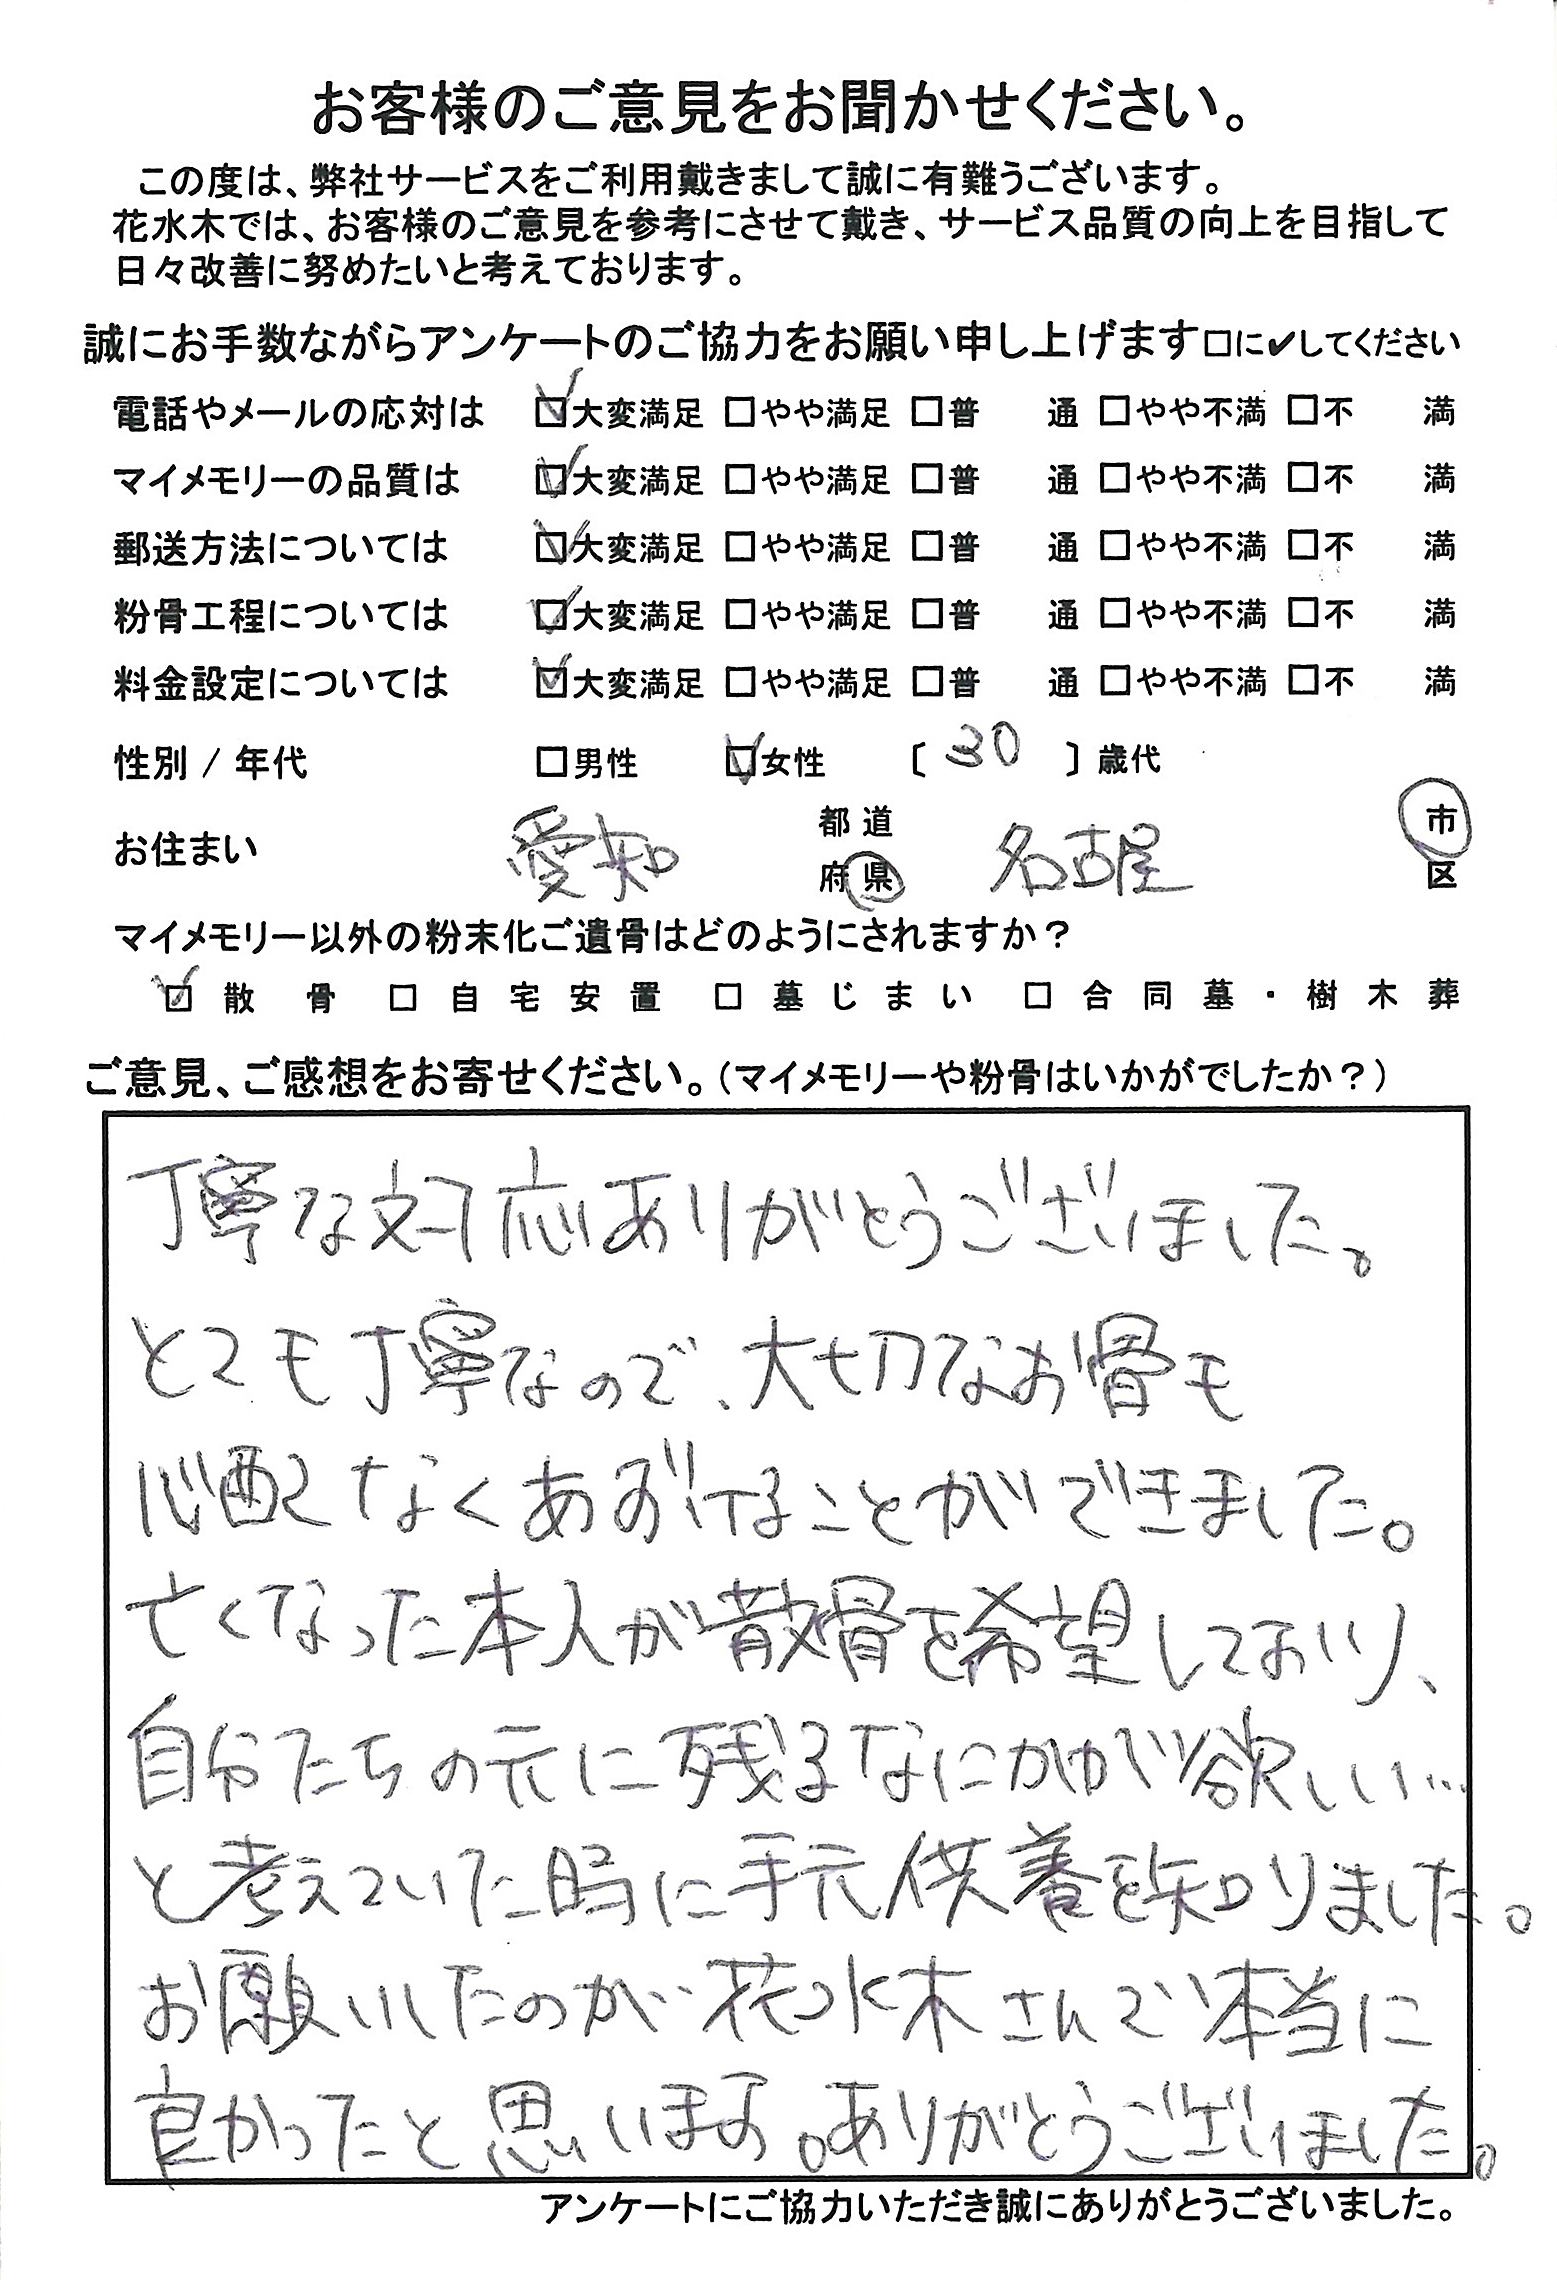 お客様のご意見をお聞かせください。
この度は、弊社サービスをご利用戴きまして誠に有難うございます。
花水木では、お客様のご意見を参考にさせて戴き、サービス品質の向上を目指して
日々改善に努めたいと考えております。
誠にお手数ながらアンケートのご協力をお願い申し上げます□に✔してください
電話やメールの応対は ☑大変満足 □やや満足 □普 通 □やや不満 □不 満
マイメモリーの品質は ☑大変満足 □やや満足 □普 通 □やや不満 □不 満
郵送方法については ☑大変満足 □やや満足 □普 通 □やや不満 □不 満
粉骨工程については ☑大変満足 □やや満足 □普 通 □やや不満 □不 満
料金設定については ☑大変満足 □やや満足 □普 通 □やや不満 □不 満
性別 / 年代 □男性 ☑女性 〔 30 〕歳代
お住まい 愛知 都道府県 名古屋 市区
マイメモリー以外の粉末化ご遺骨はどのようにされますか？
☑ 散骨 □ 自宅安置 □ 墓じまい □ 合同墓・樹木葬
ご意見、ご感想をお寄せください。（マイメモリーや粉骨はいかがでしたか？）
丁寧な対応ありがとうございました。
とても丁寧なので、大切なお骨も
心配なくあずけることができました。
亡くなった本人が散骨を希望しており、
自分たちの元に残るなにかが欲しい…
と考えていた時に手元供養を知りました。
お願いしたのが花水木さんで本当に
良かったと思います。ありがとうございました。
アンケートにご協力いただき誠にありがとうございました。